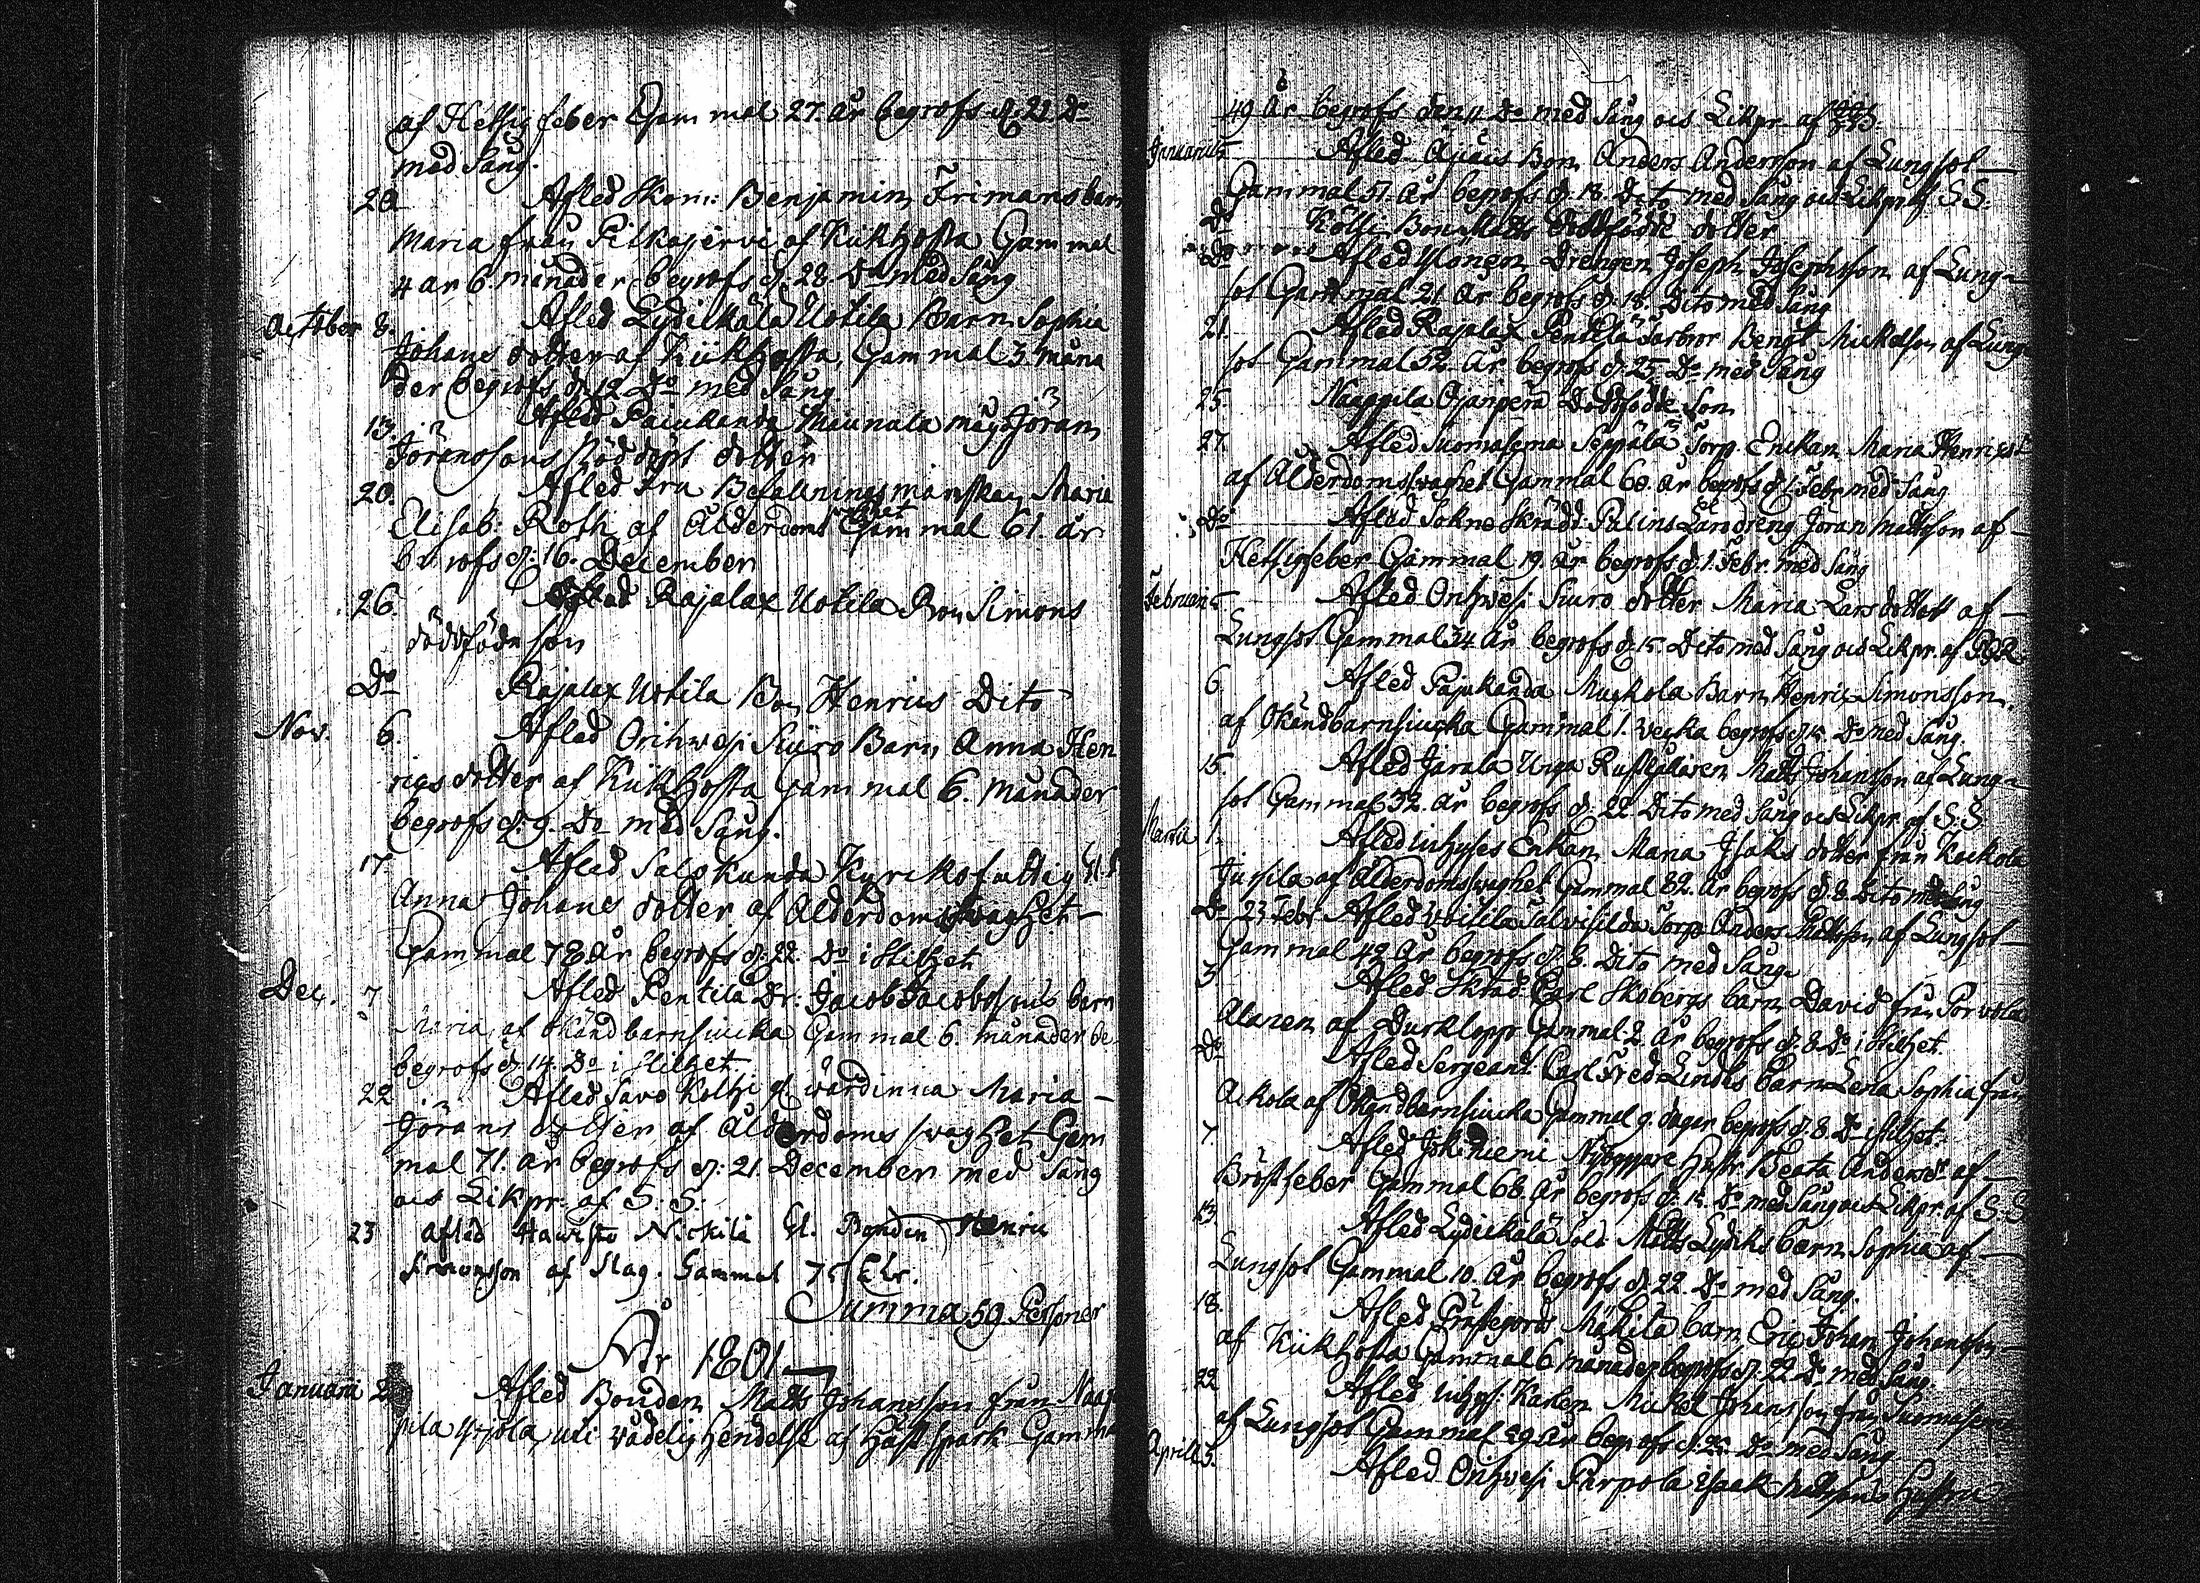 af Hetsig feber Gammal 27. år begrofs d. 21 Do
med Sång.
20 Afled Skom: Benjamin Frimans barn
Maria från Pilkajervi af Kikhosta Gammal
4 år 6. månader begrofs d. 28. Do med Sång
October 8. Afled Lydickälä Uotila Barn Sophia
Johans dotter af Kikhosta, Gammal 3. måna
der begrofs d. 12 Do med Sång
13. Afled Paiukanda måg Jöran
Jöransons nöddöpt dotter
20. Afled Fru Befallningsmanskan Maria
Elisab: Roth af Ålderdoms Gammal 61. år
begrofs d: 16. December
26. Afled Rajalax Uotila Bon Simons
dödfödn son
Do Rajalax Uotila Bon Henrics Dito
Nov. 6. Afled Orihwesi Suiro Barn Anna Hen
rics dotter af Kikhosta Gammal 6. månader
begrofs d. 9. Do med Sång.
17 Afled Salokunda Kyrckofattig
Anna Johans dotter af Ålderdomswaghet
Gammal 78 år begrofs d. 22. Do i stillhet
Dec. 7 Afled Pentilä Dr: Jacob Jacobssons barn
Maria af Okänd barnsiucka Gammal 6. månader
begrofs d. 14. Do i stillhet
22 Afled Savo Koltzi gl wärdinna Maria
Jörans dotter af Ålderdoms swaghet Gam
mal 71. år begrofs d: 21 December med Sång
och Likpr. af S: S:
23 afled Hawisto Nickilä Gl. Bonden Henric
Simonsson af Slag. Gammal
Summa 59 Personer
År 1801
Januari 2 Afled Bonden Matts Johansson från Naap
pila Yrjola, uti wådelig hendelse af Häst spark Gamma
49 år begrofs den 11 Do med Sång och Likpr. af
Januarius Afled Bon Anders Andersson af Lungsot
Gammal 51. år begrofs d. 18. Dito med Sång och Likpr af S S.
Do Kölli Bon Matts Dödfödde dotter
Do Afled Drengen Joseph Josephsson af Lung
sot Gammal 21. år begrofs d. 18. Dito med Sång
21. Afled Rajalax Pentilä Bengt Mickelson af Lung
sot Gammal 52. år begrofs d. 25 Do med Sång
25. Naappila Ojanperä Dödfödde Son
27. Afled Suomasema Seppälä Torp. Enkan Maria Henrics
af Ålderdomswaghet Gammal 60. år begrofs d 1. Febr. med Sång
Do Afled Sokne Skrädd: Palins Läro dreng Jöran Mattsson af
Hetsigfeber Gammal 19. år begrofs d. 1. Febr. med Sång
Februari 5 Afled Orihwesi Suiro dotter Maria Lars dotter af
Lungsot Gammal 34 år begrofs d. 15. Dito med Sång och Likpr. af
6. Afled Pajukanda Muckola Barn Henric Simonsson
af Okändbarnsiucka Gammal 1. wecka begrofs d. 15. Do med Sång.
15. Afled Järala Unga Rusthållaren Matts Johansson af Lung
sot Gammal 32. år begrofs d. 22 Dito med Sång och Likpr. af S. S
Martii 1. Afled Enkan Maria Isaks dotter från Kackola
Jussila af Ålderdomswaghet Gammal 82. år begrofs d. 8. Dito med Sång
Do 23 Febr Afled Torp Anders Mattsson af Lungsot
Gammal 42 år begrofs d. 8. Dito med Sång
3 Afled Skräd: Carl Skobergs barn David från Porvola
Alanen af Durklopp Gammal 2 år begrofs d. 8 Do i stillhet
Do Afled Sergeant Carl Fred Lindhs barn Lena Sophia från
Ackola af Okändbarnsiucka Gammal 9. dagar begrofs d. 8. Do i stillhet.
7 Afled Jokiniemi Nybyggare Hustr. Beata Andersdt af
Bröstfeber Gammal 68. år begrofs d. 15. Do med Sång och Likpr. af S: S
13. Afled Lydickälä Sold Matts Lydiks barn Sophia af
Lungsot Gammal 10. år begrofs d. 22. Do med Sång.
18. Afled Prästegords Mäkilä barn Eric Johan Johansson
af Kikhosta Gammal 6 månader begrofs d. 22 Do med Sång.
22 Afled Karlen Mickel Johansson från Suomasema
af Lungsot Gammal 29 år begrofs d. Do med Sång
Aprill 3. Afled Orihwesi Pärpola Isak Mattsons Hustru